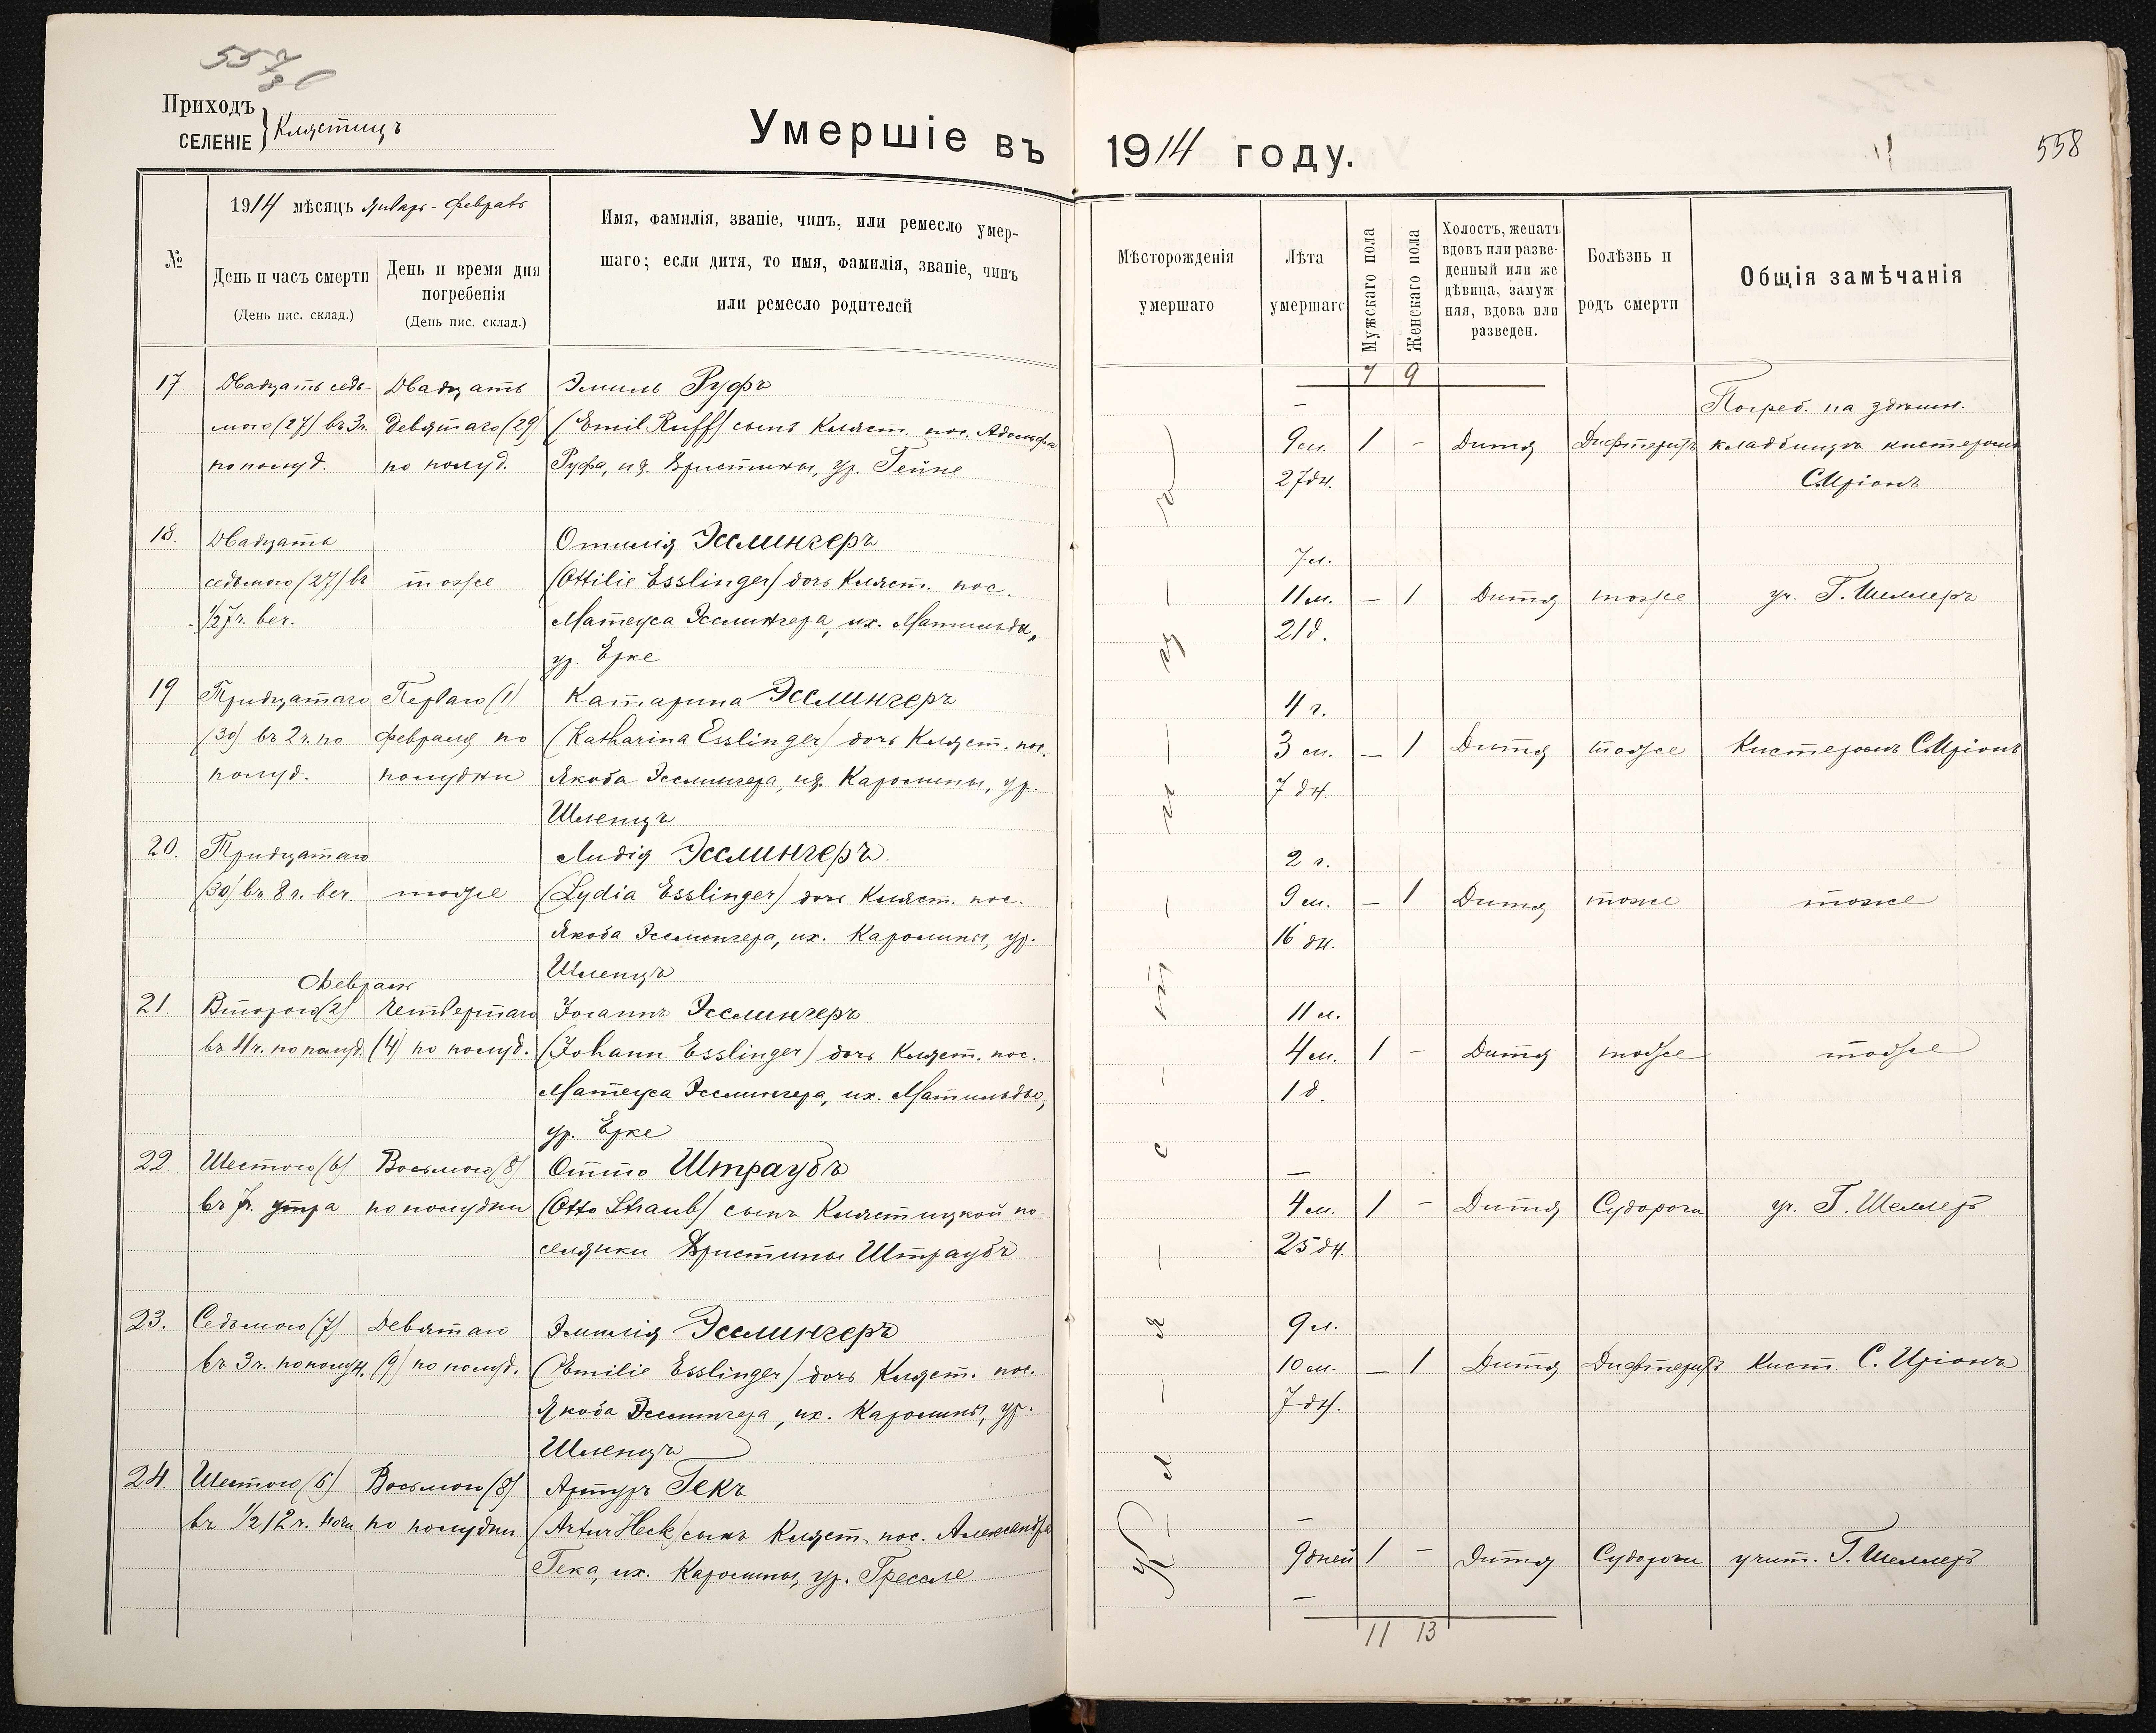 Приходъ
СЕЛЕНІЕ } Клястицъ
Умершіе въ 1914 году.
558
№
1914 мѣсяцъ Январь - Февраль
День и часъ смерти
(День пис. склад.)
День и время дня
погребенія
(День пис. склад.)
Имя, фамилія, званіе, чинъ, или ремесло умер-
шаго; если дитя, то имя, фамилія, званіе, чинъ
или ремесло родителей
Мѣсторожденія
умершаго
Лѣта
умершаго
Мужскаго пола
Женскаго пола
Холостъ, женатъ
вдовъ или разве-
денный или же
дѣвица, замуж-
няя, вдова или
разведен.
Болѣзнь и
родъ смерти
Общія замѣчанія
7 9
К-л-я-с-т-и-ц-ъ
17.
Двадцать седь-
мого (27) въ 3 ч.
пополуд.
Двадцать
девятаго (29)
по полуд.
Эмиль Руфъ
(Emil Ruff) сынъ Кляст. пос. Адольфа
Руфа, и ж. Христины, ур. Гейне
—
9 м.
27 дн.
1 -
Дитя
Дифтеритъ
Погреб. на здѣшн.
кладбищѣ кистеромъ
С. Иріонъ
18.
Двадцать
седьмого (27) въ
½ 7 ч. веч.
тоже
Отилія Эсслингеръ
(Ottilie Esslinger) дочь Кляст. пос.
Матеуса Эсслингера, и ж. Матильды,
ур. Ерке
7 л.
11 м.
21 д.
— 1
Дитя
тоже
уч. Г. Шеллеръ
19
Тридцатаго
(30) въ 2 ч. по
полуд.
Перваго (1)
февраля по
полудни
Катарина Эсслингеръ
(Katharina Esslinger) дочь Кляст. пос.
Якоба Эсслингера, и ж. Каролины, ур.
Шленцъ
4 г.
3 м.
7 дн.
— 1
Дитя
тоже
Кистеромъ С. Иріонъ
20.
Тридцатаго
(30) въ 8 ч. веч.
тоже
Лидія Эсслингеръ
(Lydia Esslinger) дочь Кляст. пос.
Якоба Эсслингера, и ж. Каролины, ур.
Шленцъ
2 г.
9 м.
16 дн.
— 1
Дитя
тоже
тоже
Февраля
21.
Второго (2)
въ 4 ч. по полуд.
Четвертаго
(4) по полуд.
Іоганнъ Эсслингеръ
(Johann Esslinger) дочь Кляст. пос.
Матеуса Эсслингера, и ж. Матильды,
ур. Ерке
11 л.
4 м.
1 д.
1 -
Дитя
тоже
тоже
22
Шестого (6)
въ 7 ч. утра
Восьмого (8)
по полудни
Отто Штраубъ
(Otto Straub) сынъ Клястицкой по-
селянки Христины Штраубъ
—
4 м.
25 дн.
1 -
Дитя
Судороги
уч. Г. Шеллеръ
23.
Седьмого (7)
въ 3 ч. пополуд.
Девятаго
(9) по полуд.
Эмилія Эсслингеръ
(Emilie Esslinger) дочь Кляст. пос.
Якоба Эсслингера, и ж. Каролины, ур.
Шленцъ
9 л.
10 м.
7 дн.
— 1
Дитя
Дифтеритъ
Кист. С. Иріонъ
24.
Шестого (6)
въ ½ 12 ч. ночи
Восьмого (8)
по полудни
Артуръ Гекъ
(Artur Heck) сынъ Кляст. пос. Александра
Гека, и ж. Каролины, ур. Грессле
—
9 дней
—
1 -
Дитя
Судороги
учит. Г. Шеллеръ
11 13